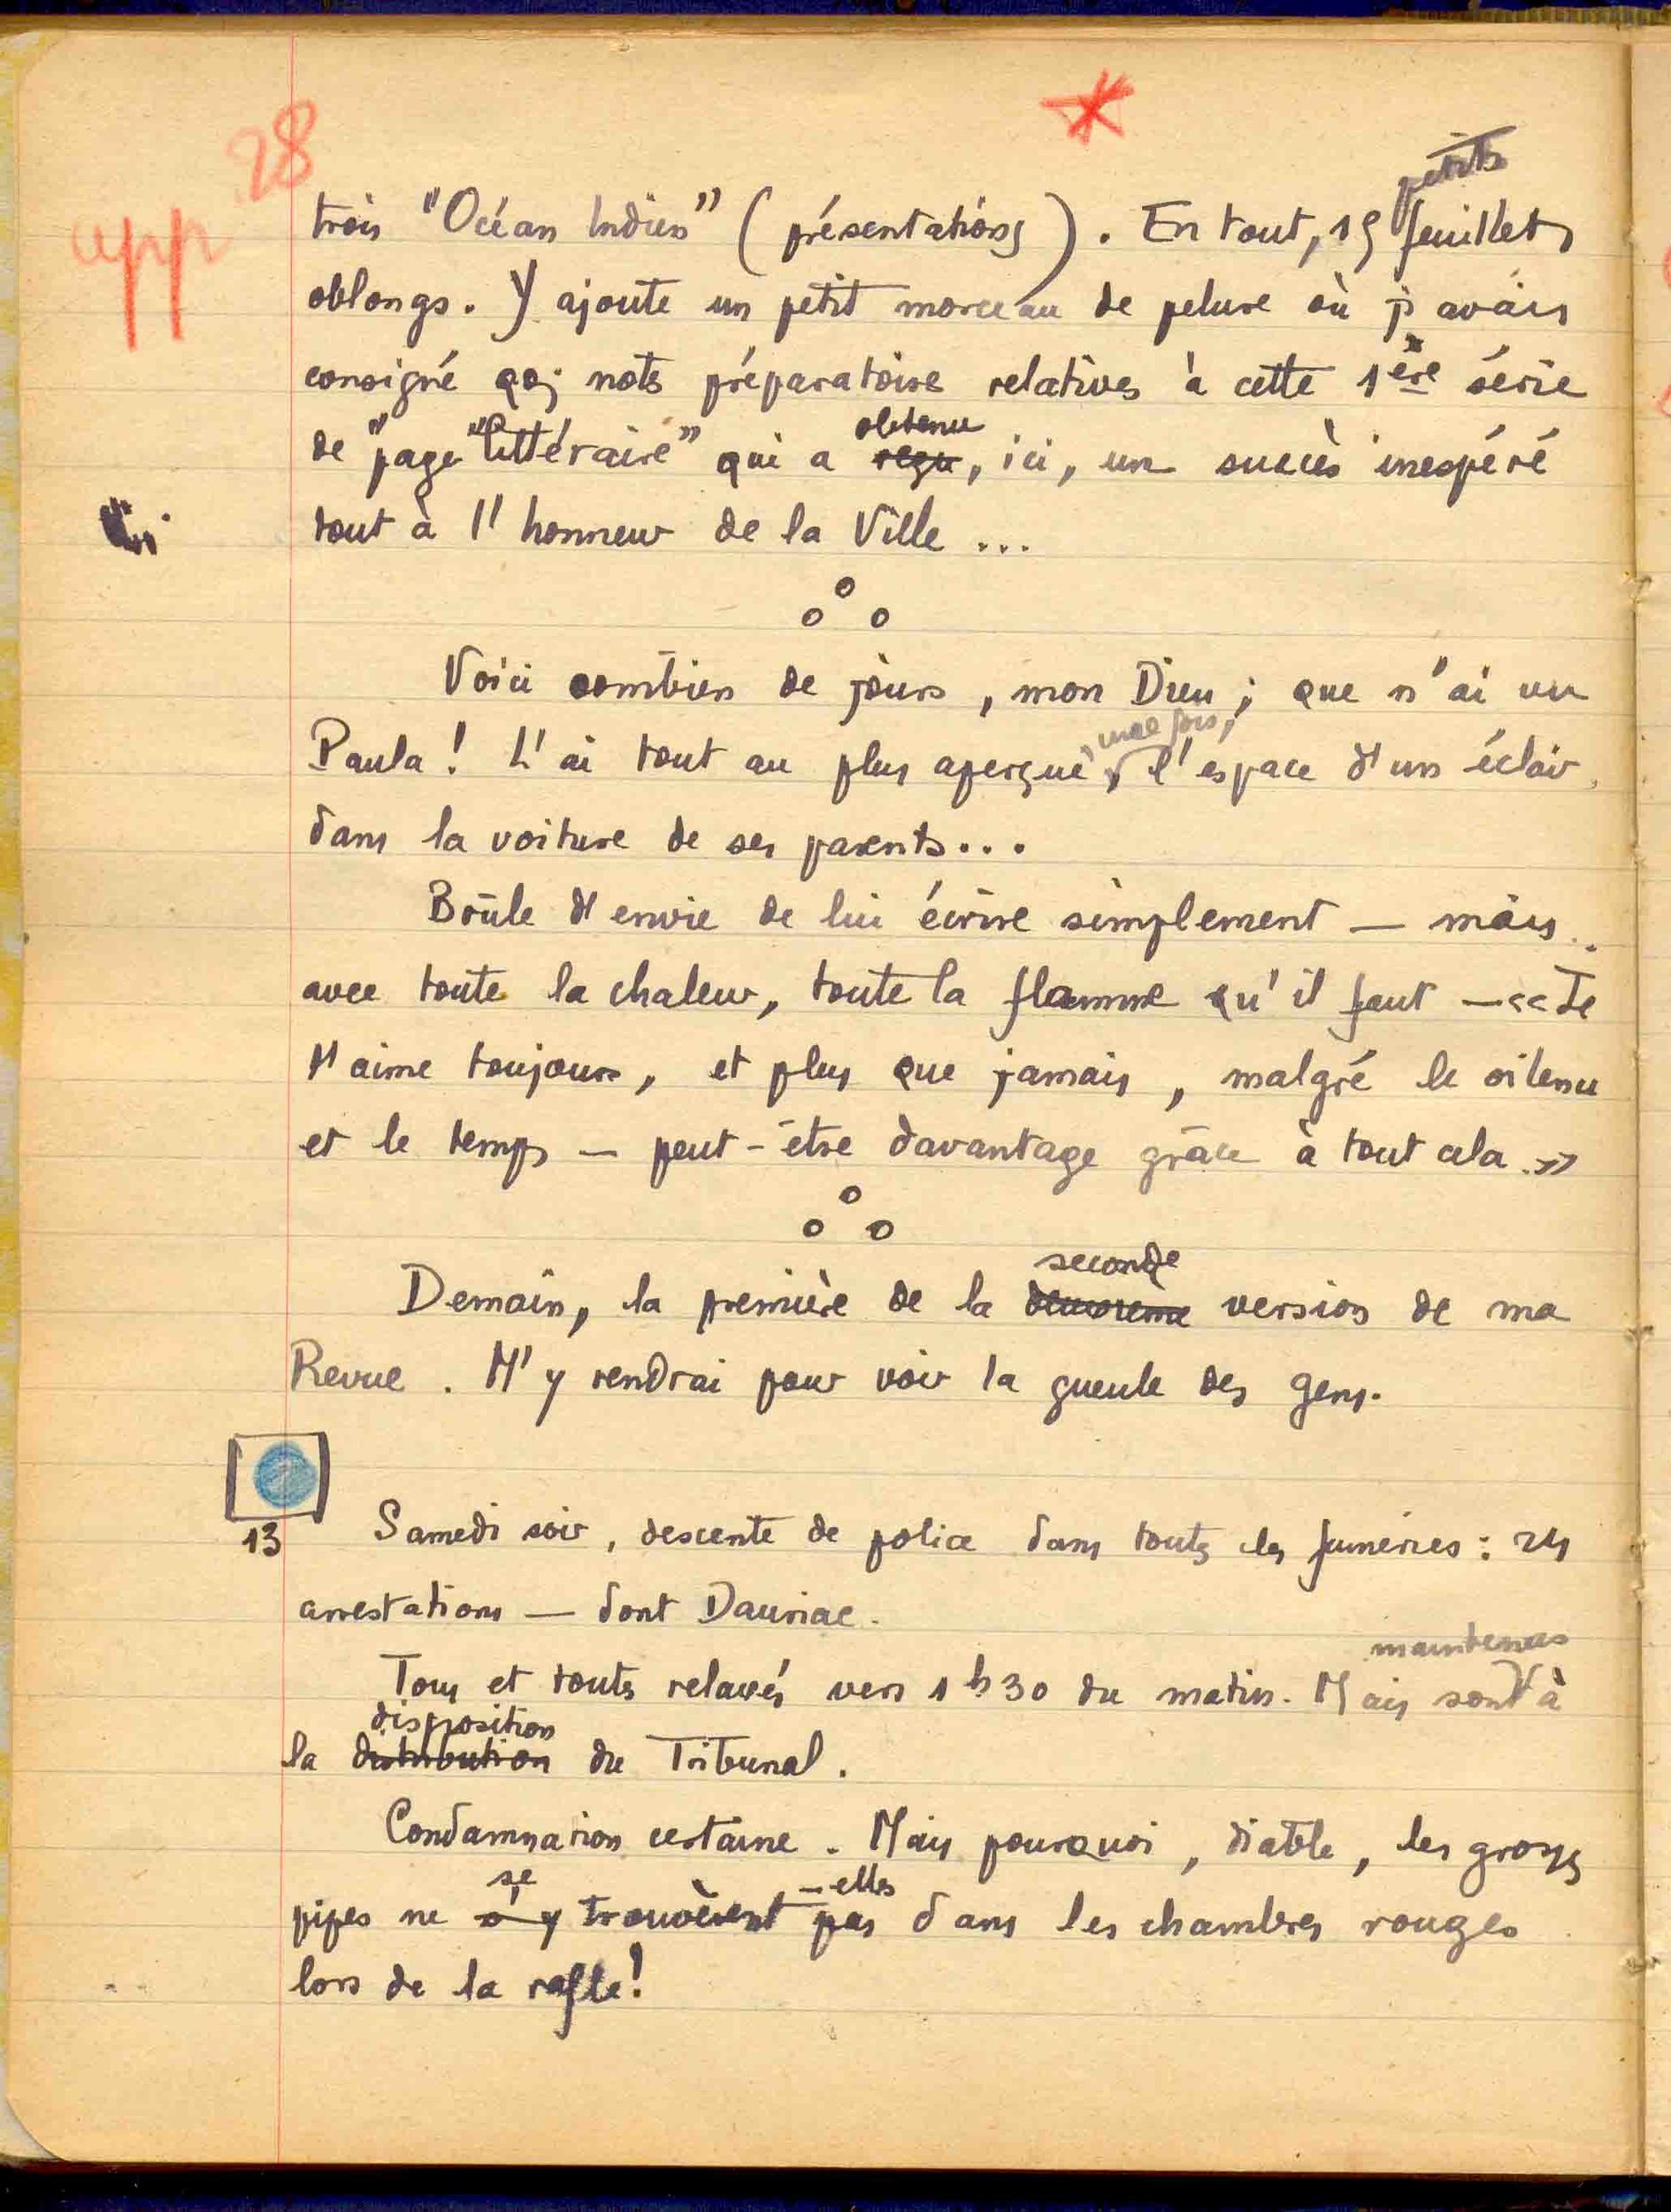 28
app
petits
trois "Océan Indien" (présentations). En tout, 19 feuillets
oblongs. Y ajoute un petit morceau de pelure où j'avais
consigné qq; notes préparatoire relatives à cette 1ère série
de "page "littéraire" qui a reçu obtenu, ici, un succès inespéré
tout à l'honneur de la Ville ...
Voici combien de jours, mon Dieu; que n'ai vu
Paula! L'ai tout au plus aperçue, une fois, l'espace d'un éclair
dans la voiture de ses parents...
Brûle d'envie de lui écrire simplement — mais
avec toute la chaleur, toute la flamme qu'il faut — «Je
t'aime toujours, et plus que jamais, malgré le silence
et le temps — peut-être davantage grâce à tout cela.»
Demain, la première de la deuxième seconde version de ma
Revue. M'y rendrai pour voir la gueule des gens.
13
Samedi soir, descente de police dans toutes les fumeries: 24
arrestations — dont Dauriac.
Tous et toutes relaxés vers 1h30 du matin. Mais sont maintenus à
la distribution disposition du Tribunal.
Condamnation certaine. Mais pourquoi, diable, les grosses
pipes ne s'y se trouvèrent-elles pas dans les chambres rouges
lors de la rafle!